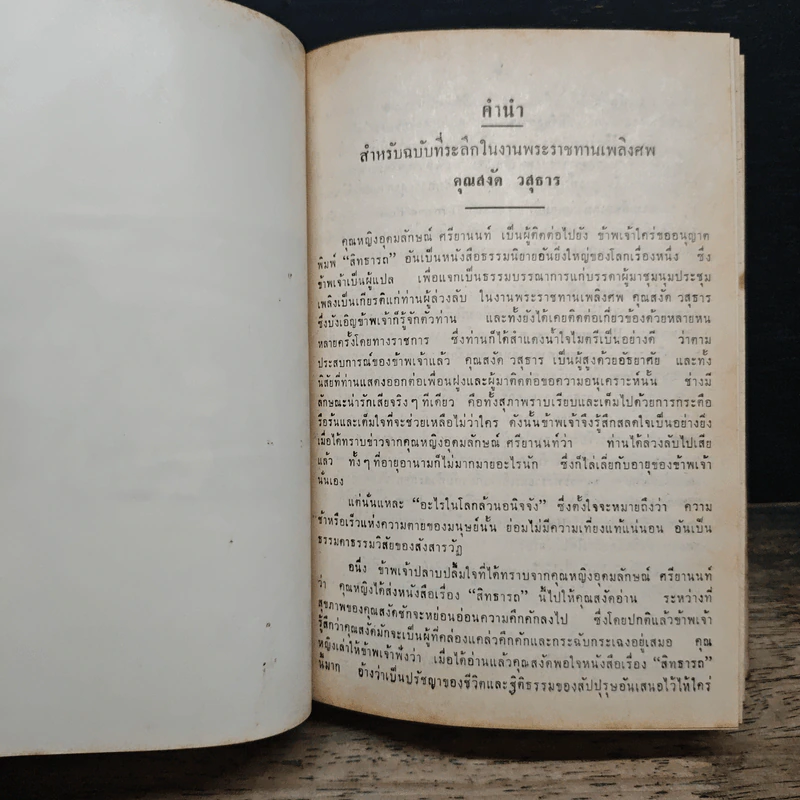 คำนำ
สำหรับฉบับที่ระลึกในงานพระราชทานเพลิงศพ
คุณสงัด วสุธาร
คุณหญิงอุดมลักษณ์ ศรียานนท์ เป็นผู้ติดต่อไปยัง ข้าพเจ้าใคร่ขออนุญาต
พิมพ์ “สิทธารถ” อันเป็นหนังสือธรรมนิยายอันยิ่งใหญ่ของโลกเรื่องหนึ่ง ซึ่ง
ข้าพเจ้าเป็นผู้แปล เพื่อแจกเป็นธรรมบรรณาการแก่บรรดาผู้มาชุมนุมประชุม
เพลิงเป็นเกียรติแก่ท่านผู้ล่วงลับ ในงานพระราชทานเพลิงศพ คุณสงัด วสุธาร
ซึ่งบังเอิญข้าพเจ้าก็รู้จักตัวท่าน และทั้งยังได้เคยติดต่อเกี่ยวข้องด้วยหลายหน
หลายครั้งโดยทางราชการ ซึ่งท่านก็ได้สำแดงน้ำใจไมตรีเป็นอย่างดี ว่าตาม
ประสบการณ์ของข้าพเจ้าแล้ว คุณสงัด วสุธาร เป็นผู้สูงด้วยอัธยาศัย และทั้ง
นิสัยที่ท่านแสดงออกต่อเพื่อนฝูงและผู้มาติดต่อขอความอนุเคราะห์นั้น ช่างมี
ลักษณะน่ารักเสียจริงๆ ทีเดียว คือทั้งสุภาพราบเรียบและเต็มไปด้วยการกระตือ
รือร้นและเต็มใจที่จะช่วยเหลือไม่ว่าใคร ดังนั้นข้าพเจ้าจึงรู้สึกสลดใจเป็นอย่างยิ่ง
เมื่อได้ทราบข่าวจากคุณหญิงอุดมลักษณ์ ศรียานนท์ว่า ท่านได้ล่วงลับไปเสีย
แล้ว ทั้งๆ ที่อายุอานามก็ไม่มากมายอะไรนัก ซึ่งก็ไล่เลี่ยกับอายุของข้าพเจ้า
นั่นเอง
แต่นั่นแหละ “อะไรในโลกล้วนอนิจจัง” ซึ่งตั้งใจจะหมายถึงว่า ความ
ช้าหรือเร็วแห่งความตายของมนุษย์นั้น ย่อมไม่มีความเที่ยงแท้แน่นอน อันเป็น
ธรรมดาธรรมวิสัยของสังสารวัฏ
อนึ่ง ข้าพเจ้าปลาบปลื้มใจที่ได้ทราบจากคุณหญิงอุดมลักษณ์ ศรียานนท์
ว่า คุณหญิงได้ส่งหนังสือเรื่อง “สิทธารถ” นี้ไปให้คุณสงัดอ่าน ระหว่างที่
สุขภาพของคุณสงัดชักจะหย่อนอ่อนความคึกคักลงไป ซึ่งโดยปกติแล้วข้าพเจ้า
รู้สึกว่าคุณสงัดมักจะเป็นผู้ที่คล่องแคล่วคึกคักและกระฉับกระเฉงอยู่เสมอ คุณ
หญิงเล่าให้ข้าพเจ้าฟังว่า เมื่อได้อ่านแล้วคุณสงัดพอใจหนังสือเรื่อง “สิทธารถ”
นี้มาก อ้างว่าเป็นปรัชญาของชีวิตและฐิติธรรมของสัปปุรุษอันเสนอไว้ให้ใคร่